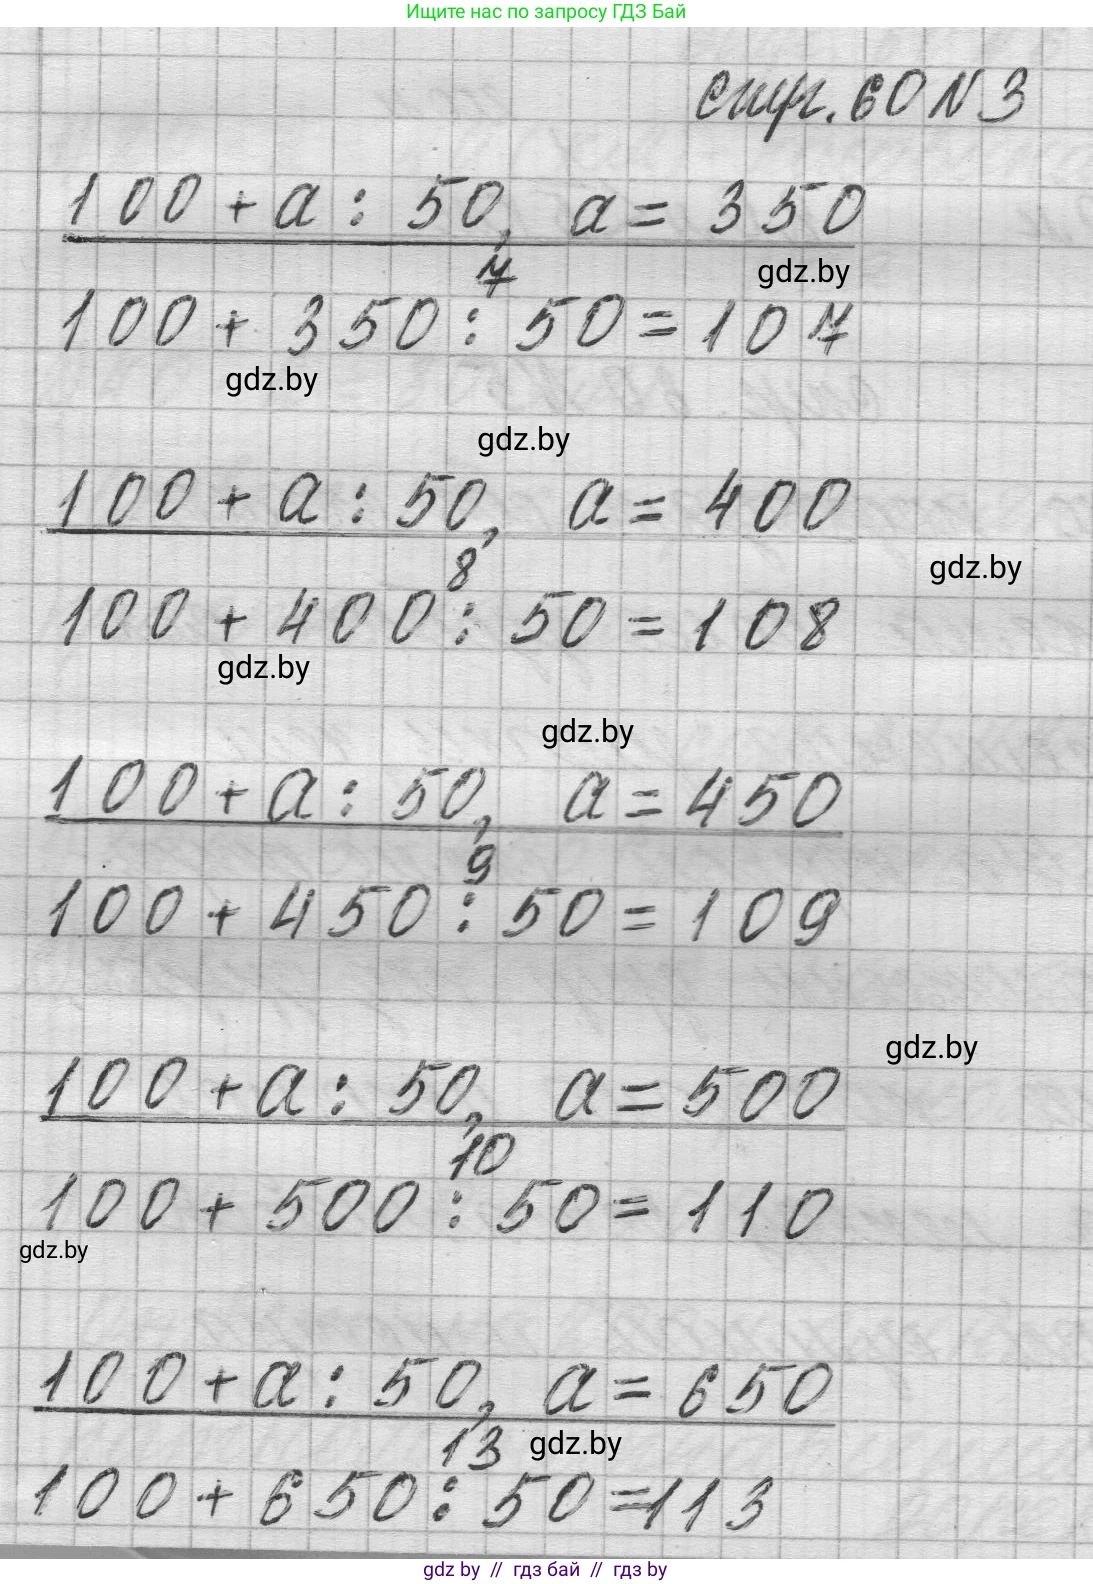 Ищите нас по запросу ГДЗ Бай
стр. 60 N 3
100 + а : 50, а = 350
gdz.by
7
100 + 350 : 50 = 107
gdz.by
gdz.by
100 + а : 50, а = 400
8
gdz.by
100 + 400 : 50 = 108
gdz.by
gdz.by
100 + а : 50, а = 450
9
100 + 450 : 50 = 109
gdz.by
100 + а : 50, а = 500
10
100 + 500 : 50 = 110
gdz.by
100 + а : 50, а = 650
13
gdz.by
100 + 650 : 50 = 113
gdz by // гдз бай // гдз by